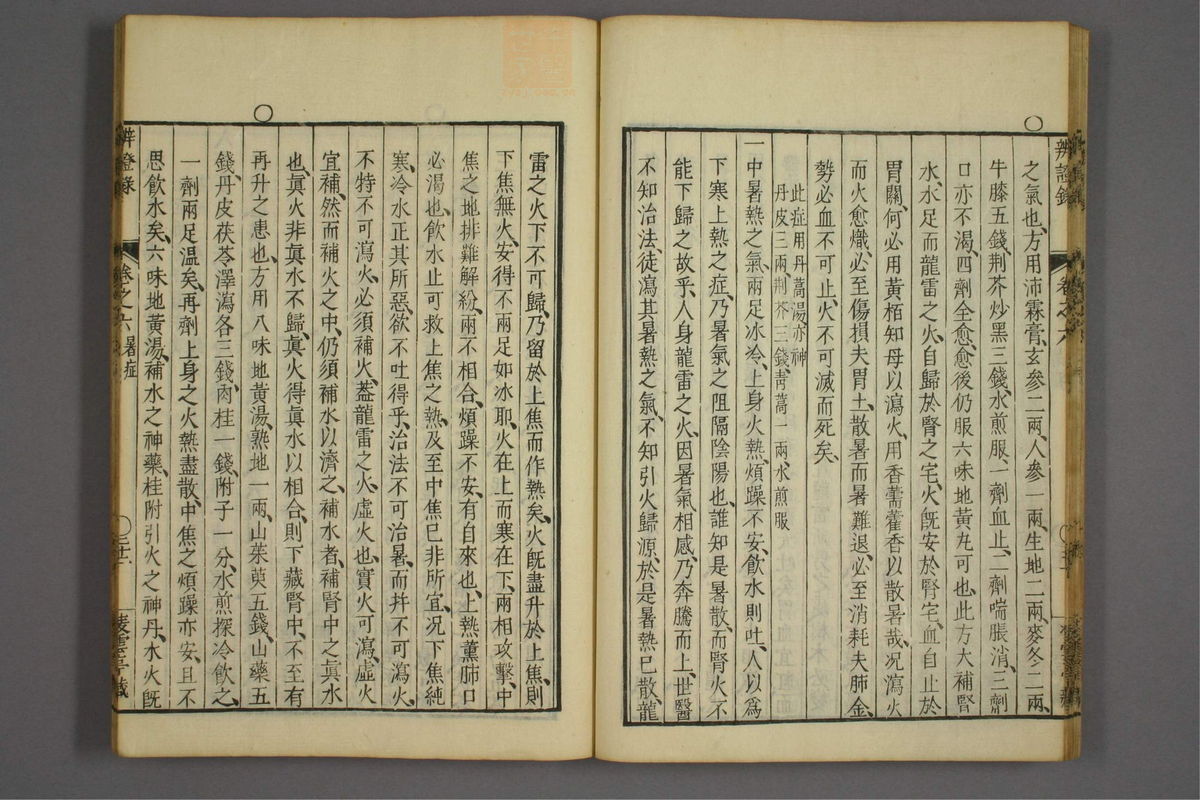 之氣也、方用沛霖膏、玄參二兩、人參一兩、生地二兩、麥冬二兩、
牛膝五錢、荆芥炒黑三錢、水煎服、一劑血止、二劑喘脹消、三劑
口亦不渴、四劑全愈、愈後仍服六味地黃丸可也、此方大補腎
水、水足而龍雷之火、自歸於腎之宅、火旣安於腎宅、血自止於
胃關、何必用黃栢知母以瀉火、用香薷藿香以散暑哉、况瀉火
而火愈熾、必至傷損夫胃土、散暑而暑難退、必至消耗夫肺金、
勢必血不可止、火不可滅而死矣、
此症用丹蒿湯亦神
丹皮三兩、荆芥三錢、靑蒿一兩、水煎服
一中暑熱之氣、兩足冰冷、上身火熱、煩躁不安、飲水則吐、人以爲
下寒上熱之症、乃暑氣之阻隔陰陽也、誰知是暑散而腎火不
能下歸之故乎、人身龍雷之火、因暑氣相感、乃奔騰而上、世醫
不知治法、徒瀉其暑熱之氣、不知引火歸源、於是暑熱已散、龍
辨證錄
卷之六
雷之火下不可歸、乃留於上焦而作熱矣、火旣盡升於上焦、則
下焦無火、安得不兩足如冰耶、火在上而寒在下、兩相攻擊、中
焦之地排難解紛、兩不相合、煩躁不安、有自來也、上熱薰肺口
必渴也、飲水止可救上焦之熱、及至中焦已非所宜、况下焦純
寒、冷水正其所惡、欲不吐得乎、治法不可治暑、而并不可瀉火、
不特不可瀉火、必須補火、葢龍雷之火虛火也、實火可瀉、虛火
宜補、然而補火之中、仍須補水以濟之、補水者、補腎中之眞水
也、眞火非眞水不歸、眞火得眞水以相合、則下藏腎中、不至有
再升之患也、方用八味地黃湯、熟地一兩、山茱萸五錢、山藥五
錢、丹皮茯苓澤瀉各三錢、肉桂一錢、附子一分、水煎探冷飲之、
一劑兩足溫矣、再劑上身之火熱盡散、中焦之煩躁亦安、且不
思飲水矣、六味地黃湯、補水之神藥、桂附引火之神丹、水火旣
辨證錄
卷之六 暑症